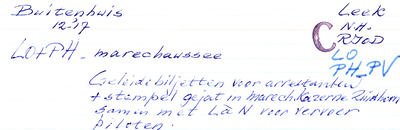 Buitenhuis
12-'17
Leek
N.H.
C
RIOD
LO+PH - marechaussee
LO
PH-PV
Geleidebiljetten voor arrestanten
+ stempel gejat in marech.Kazerne
samen met L&N voor vervoer
piloten.